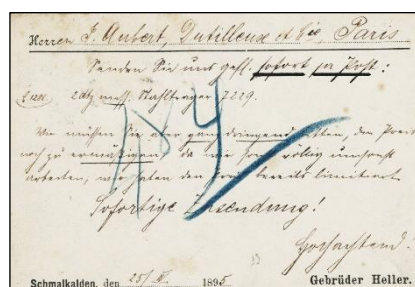 Herren J. Aubert, Dutilleux et Cie, Paris
Senden Sie uns gefl. sofort per Post:
2 dtz mess. Stahlträger 7229.
Wir müssen Sie aber ganz dringend bitten, den Preis
noch zu ermäßigen, da wir sonst völlig umsonst
arbeiten, wir haben den bereits limitiert.
Sofortige Zusendung!
Hochachtend!
Schmalkalden, den 25/ 1895 Gebrüder Heller.